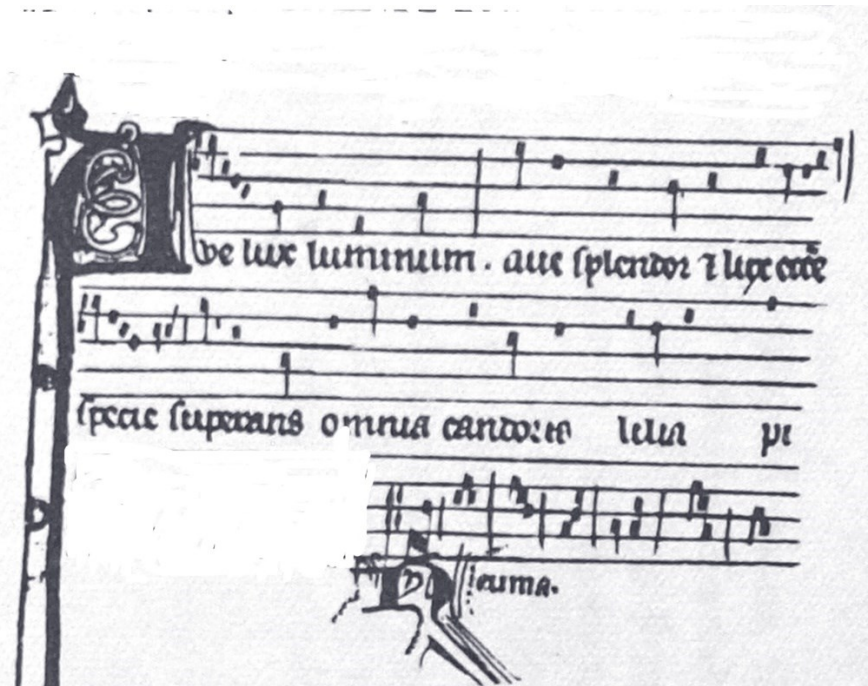 ve lux luminum. aue splendor ⁊ lux eccͣe
specie superans omnia candoris lilia pi
euma.